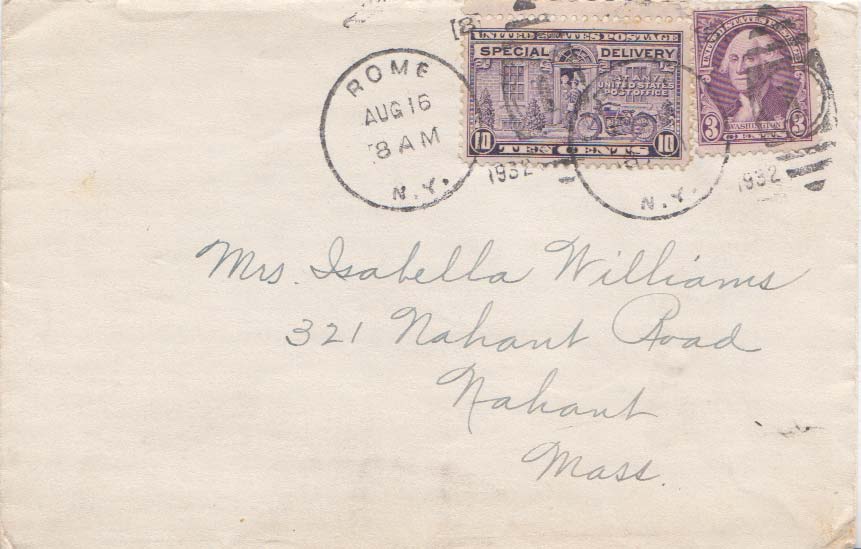 [8]
UNITED STATES POSTAGE
SPECIAL DELIVERY
AT ANY
UNITED STATES
POST OFFICE
10 TEN CENTS 10
UNITED STATES POSTAGE
3 WASHINGTON 3
CENTS
ROME
AUG 16
8 AM
N.Y.
1932
N.Y.
1932
Mrs. Isabella Williams
321 Nahant Road
Nahant
Mass.